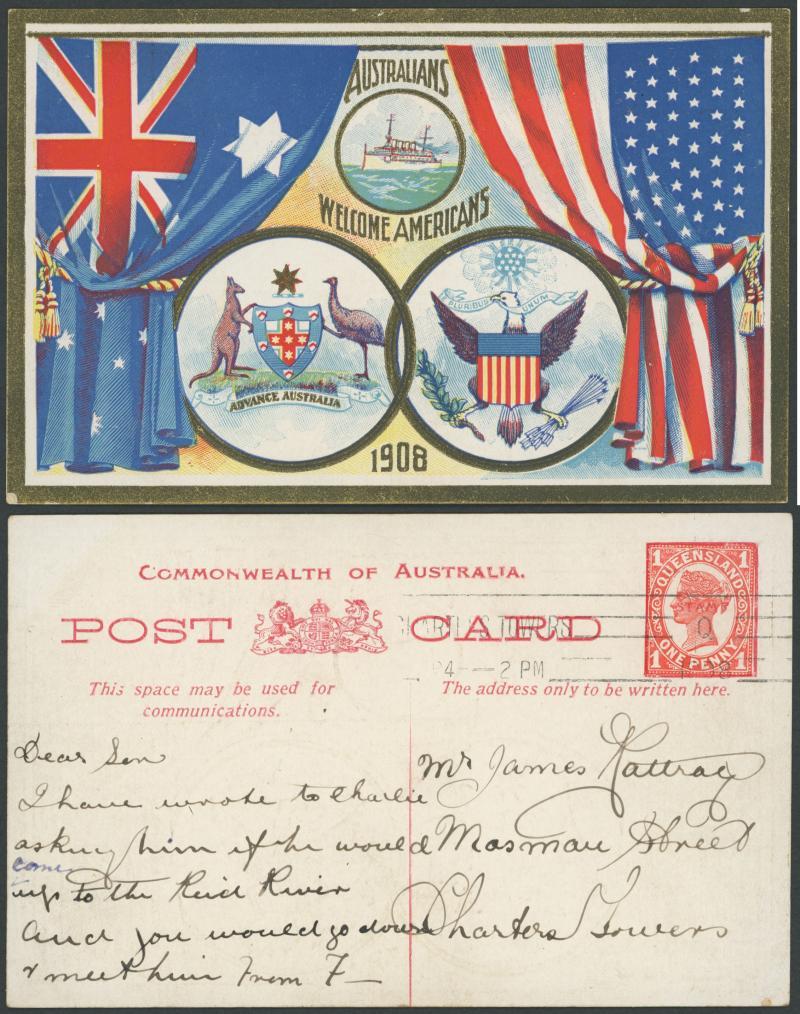 AUSTRALIANS
WELCOME AMERICANS
E PLURIBUS UNUM
ADVANCE AUSTRALIA
1908
COMMONWEALTH OF AUSTRALIA.
POST CARD
1 QUEENSLAND 1
STAMP
1 ONE PENNY 1
CHARTERS TOWERS
24 -- 2 PM
This space may be used for
communications.
The address only to be written here.
Dear Son
I have wrote to Charlie
asking him if he would
come
up to the Reid River
and you would go down
& meet him From F—
Mr James Rattray
Mosman Street
Charters Towers